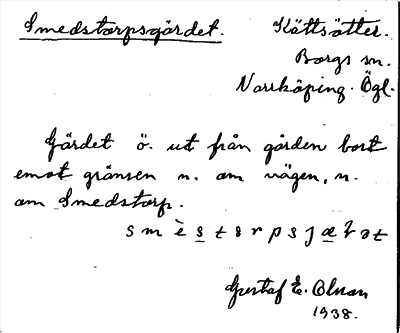 Smedstorpsgärdet. Kättsätter.
Borgs sn.
Norrköping. Ögl.
Gärdet ö. ut från gården bort
emot gränsen n. om vägen, n.
om Smedstorp.
Gustaf E. Olsson
1938.